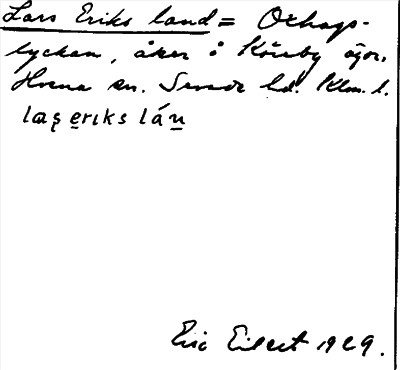 Lars Eriks land = Oxhags-
lyckan, åker å Kåreby ägor.
Hvena sn. Sevede hd. Klm. l.
laş ęriks lán
Eric Eilert 1929.